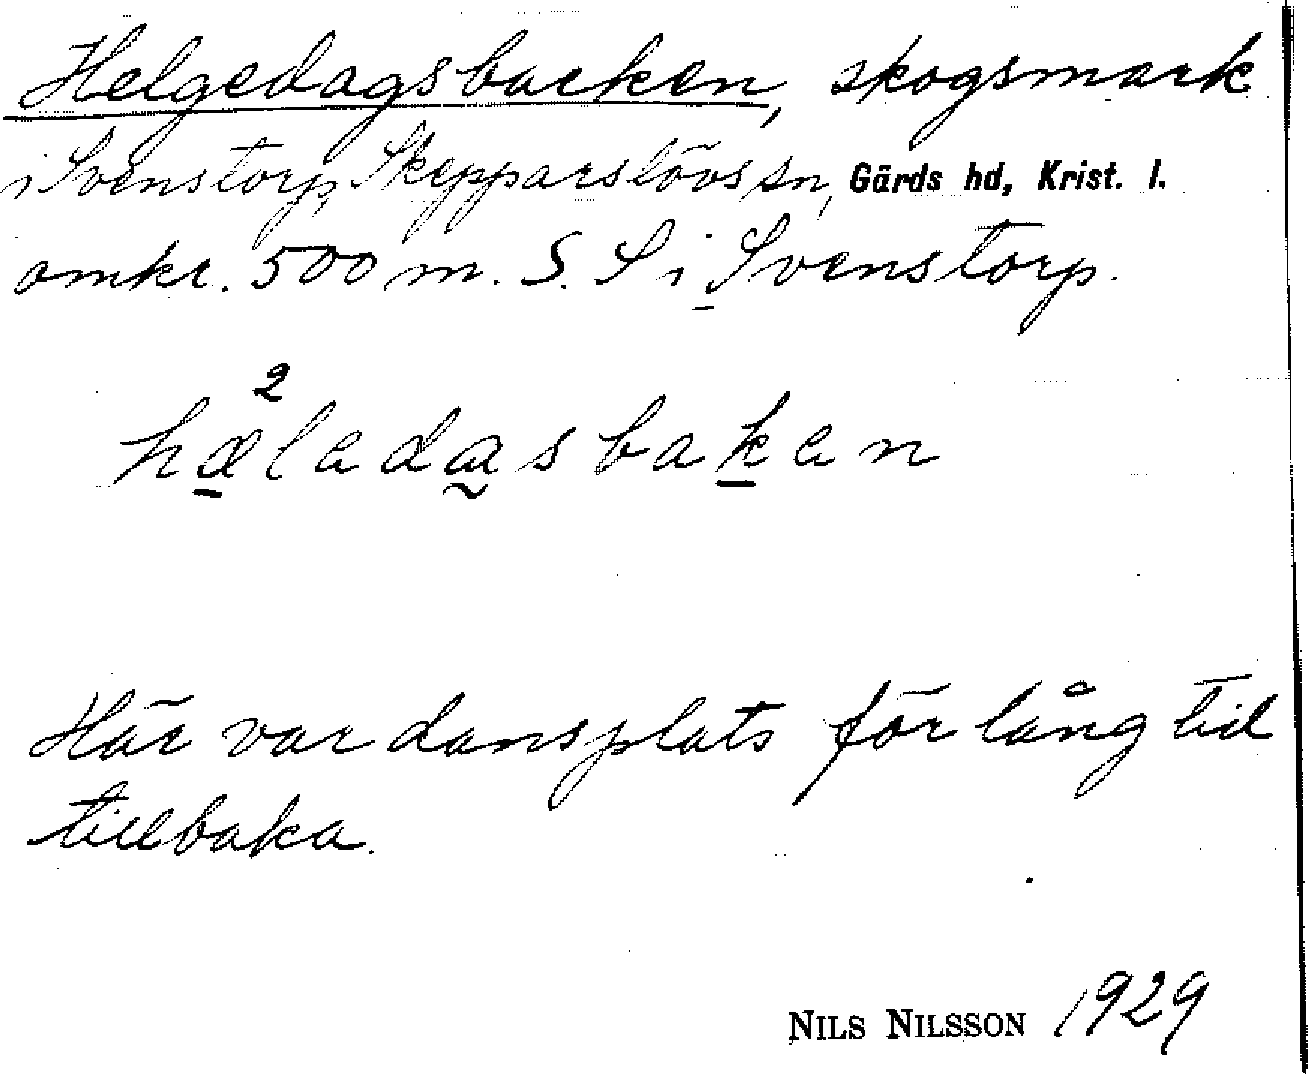 Helgedagsbacken, skogsmark
i Svenstorp, Skepparslövs sn, Gärds hd, Krist. l.
omkr. 500 m. S. S i Svenstorp.
2
hæledasbaken
Här var dansplats för lång tid
tillbaka.
NILS NILSSON 1929